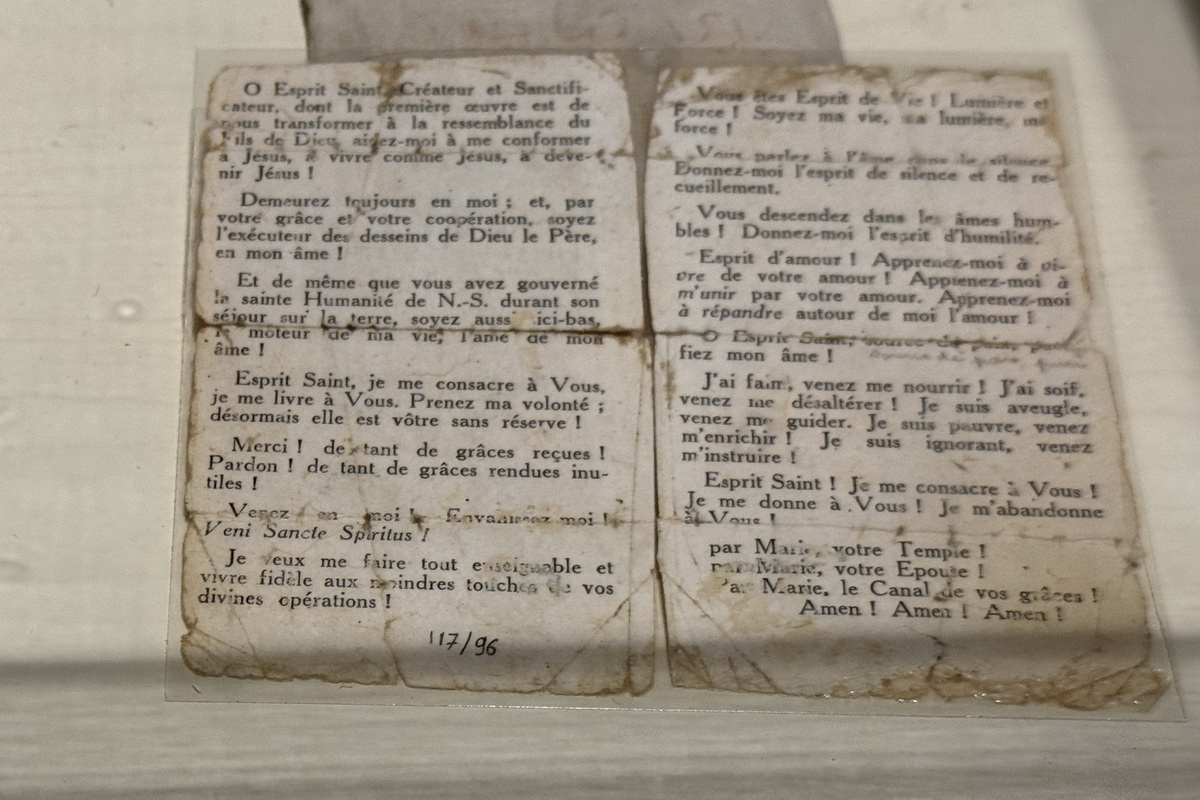 O Esprit Saint, Créateur et Sanctifi-
cateur, dont la première œuvre est de
nous transformer à la ressemblance du
Fils de Dieu, aidez-moi à me conformer
à Jésus, à vivre comme Jésus, à deve-
nir Jésus !
Demeurez toujours en moi ; et, par
votre grâce et votre coopération, soyez
l'exécuteur des desseins de Dieu le Père,
en mon âme !
Et de même que vous avez gouverné
la sainte Humanité de N.-S. durant son
séjour sur la terre, soyez aussi ici-bas,
le moteur de ma vie, l'âme de mon
âme !
Esprit Saint, je me consacre à Vous,
je me livre à Vous. Prenez ma volonté ;
désormais elle est vôtre sans réserve !
Merci ! de tant de grâces reçues !
Pardon ! de tant de grâces rendues inu-
tiles !
Venez en moi ! Envahissez moi !
Veni Sancte Spiritus !
Je veux me faire tout enseignable et
vivre fidèle aux moindres touches de vos
divines opérations !
117/96
Vous êtes Esprit de Vie ! Lumière et
Force ! Soyez ma vie, ma lumière, ma
force !
Vous parlez à l'âme dans le silence
Donnez-moi l'esprit de silence et de re-
cueillement.
Vous descendez dans les âmes hum-
bles ! Donnez-moi l'esprit d'humilité.
Esprit d'amour ! Apprenez-moi à vi-
vre de votre amour ! Apprenez-moi à
m'unir par votre amour. Apprenez-moi
à répandre autour de moi l'amour !
O Esprit Saint, source de paix,
fiez mon âme !
J'ai faim, venez me nourrir ! J'ai soif,
venez me désaltérer ! Je suis aveugle,
venez me guider. Je suis pauvre, venez
m'enrichir ! Je suis ignorant, venez
m'instruire !
Esprit Saint ! Je me consacre à Vous !
Je me donne à Vous ! Je m'abandonne
à Vous !
par Marie, votre Temple !
par Marie, votre Epouse !
Par Marie, le Canal de vos grâces !
Amen ! Amen ! Amen !